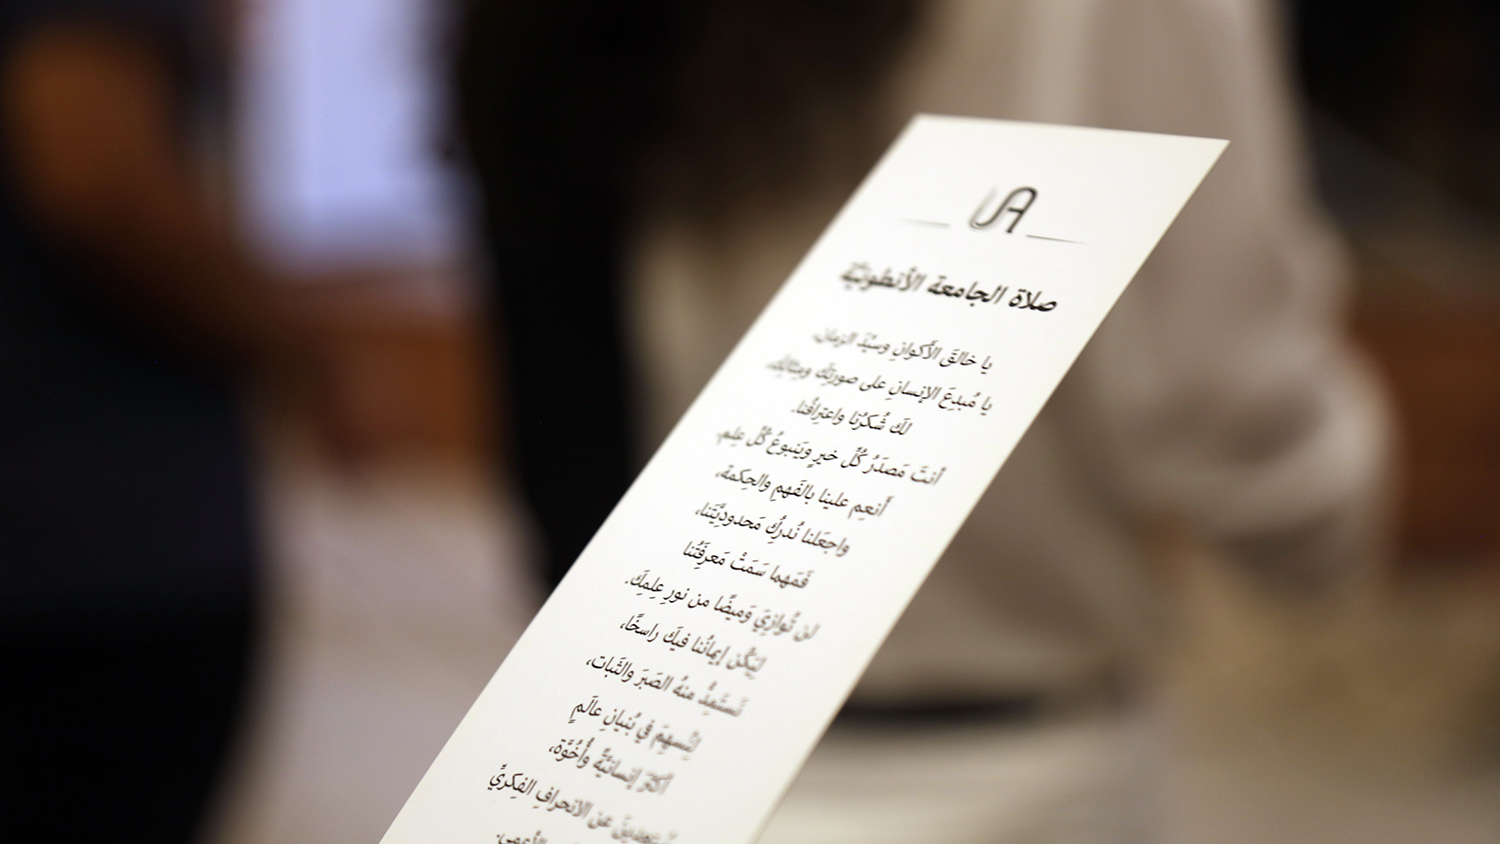 UA
صلاة الجامعة الأنطونيّة
يا خالقَ الأكوانِ وسيِّدَ الزمانِ،
يا مُبدِعَ الإنسانِ على صورتِكَ ومِثالِكَ،
لكَ شُكرُنا واعترافُنا.
أنتَ مَصدَرُ كُلِّ خيرٍ ويَنبوعُ كُلِّ عِلمٍ،
أَنعِم علينا بالفَهمِ والحِكمة،
واجعَلنا نُدرِكُ مَحدوديَّتَنا،
فَمَهما سَمَتْ مَعرِفَتُنا
لن تُوازِيَ وَميضًا من نورِ عِلمِكَ.
ليَكُن إيمانُنا فيكَ راسخًا،
نَستَمِدُّ منهُ الصَبرَ والثَبات،
لنُسهِمَ في بُنيانِ عالَمٍ
أكثَرَ إنسانيَّةً وأُخُوَّة،
مُبتعِدينَ عن الانحرافِ الفِكريِّ
الأعمى.